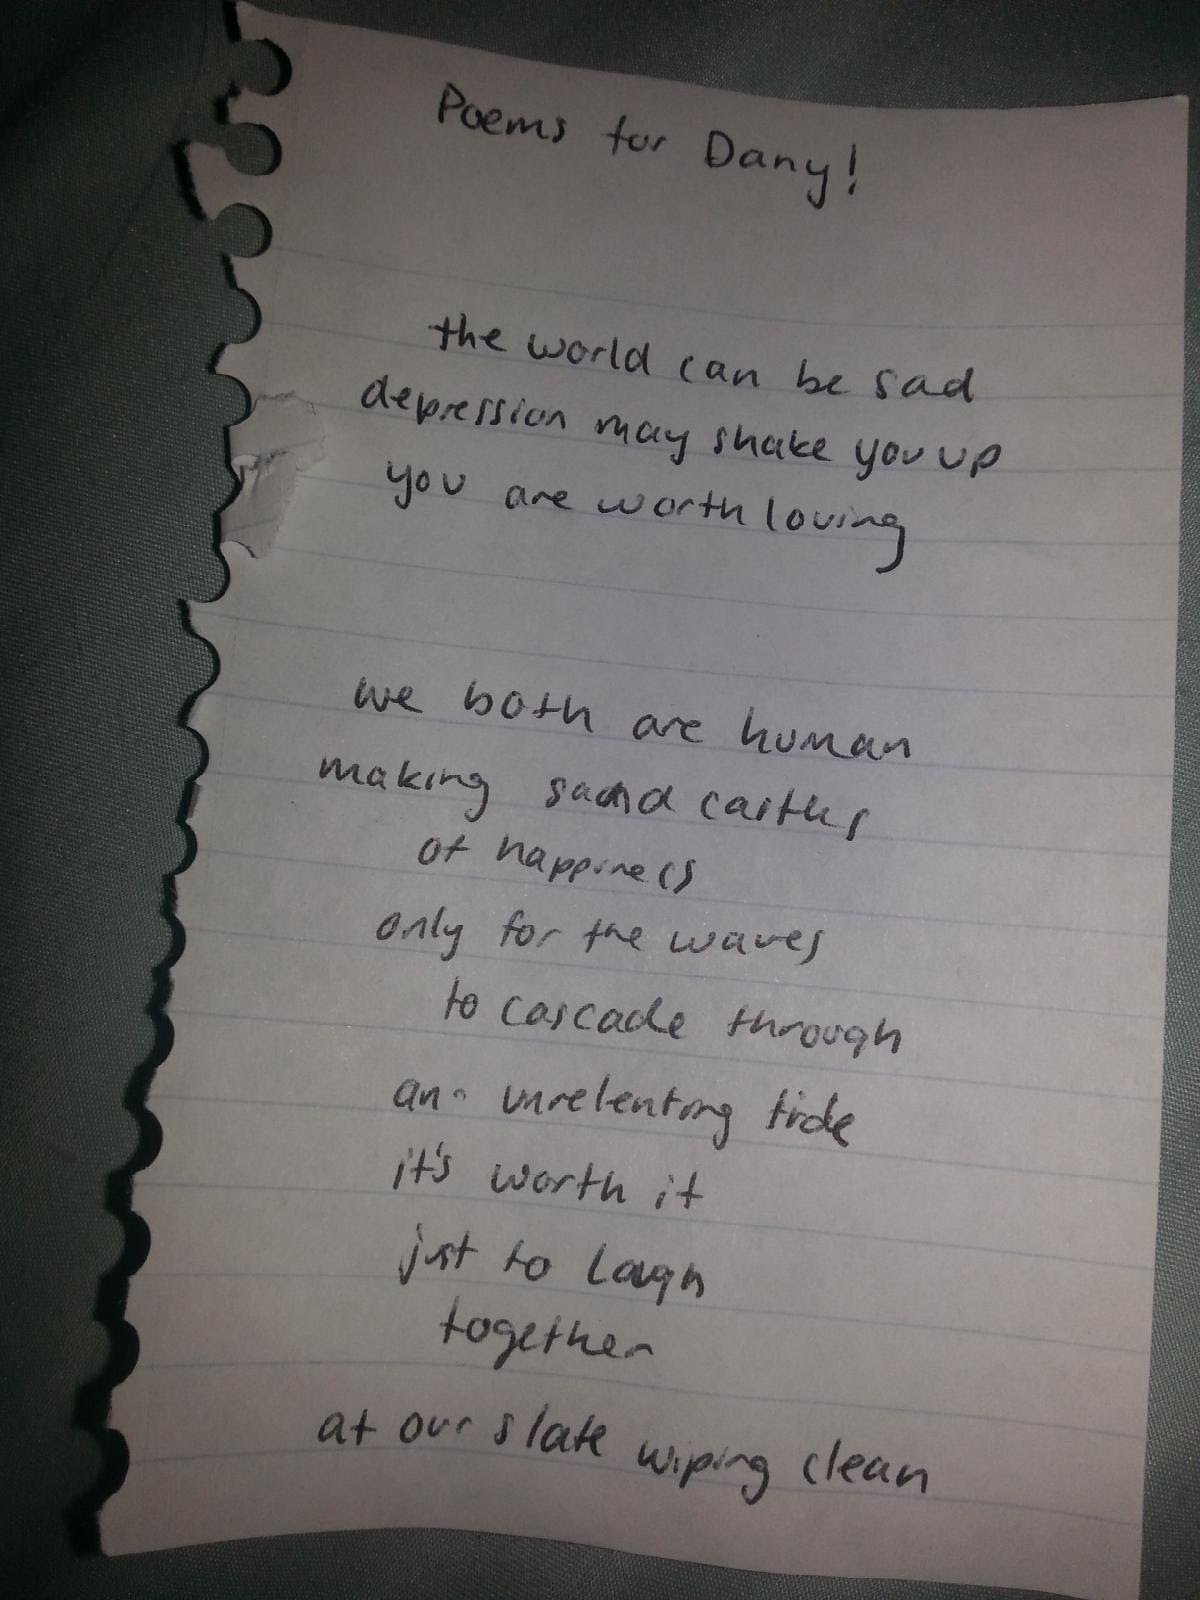 Poems for Dany!
the world can be sad
depression may shake you up
you are worth loving
we both are human
making sand castles
of happiness
only for the waves
to cascade through
an unrelenting tide
it's worth it
just to laugh
together
at our slate wiping clean